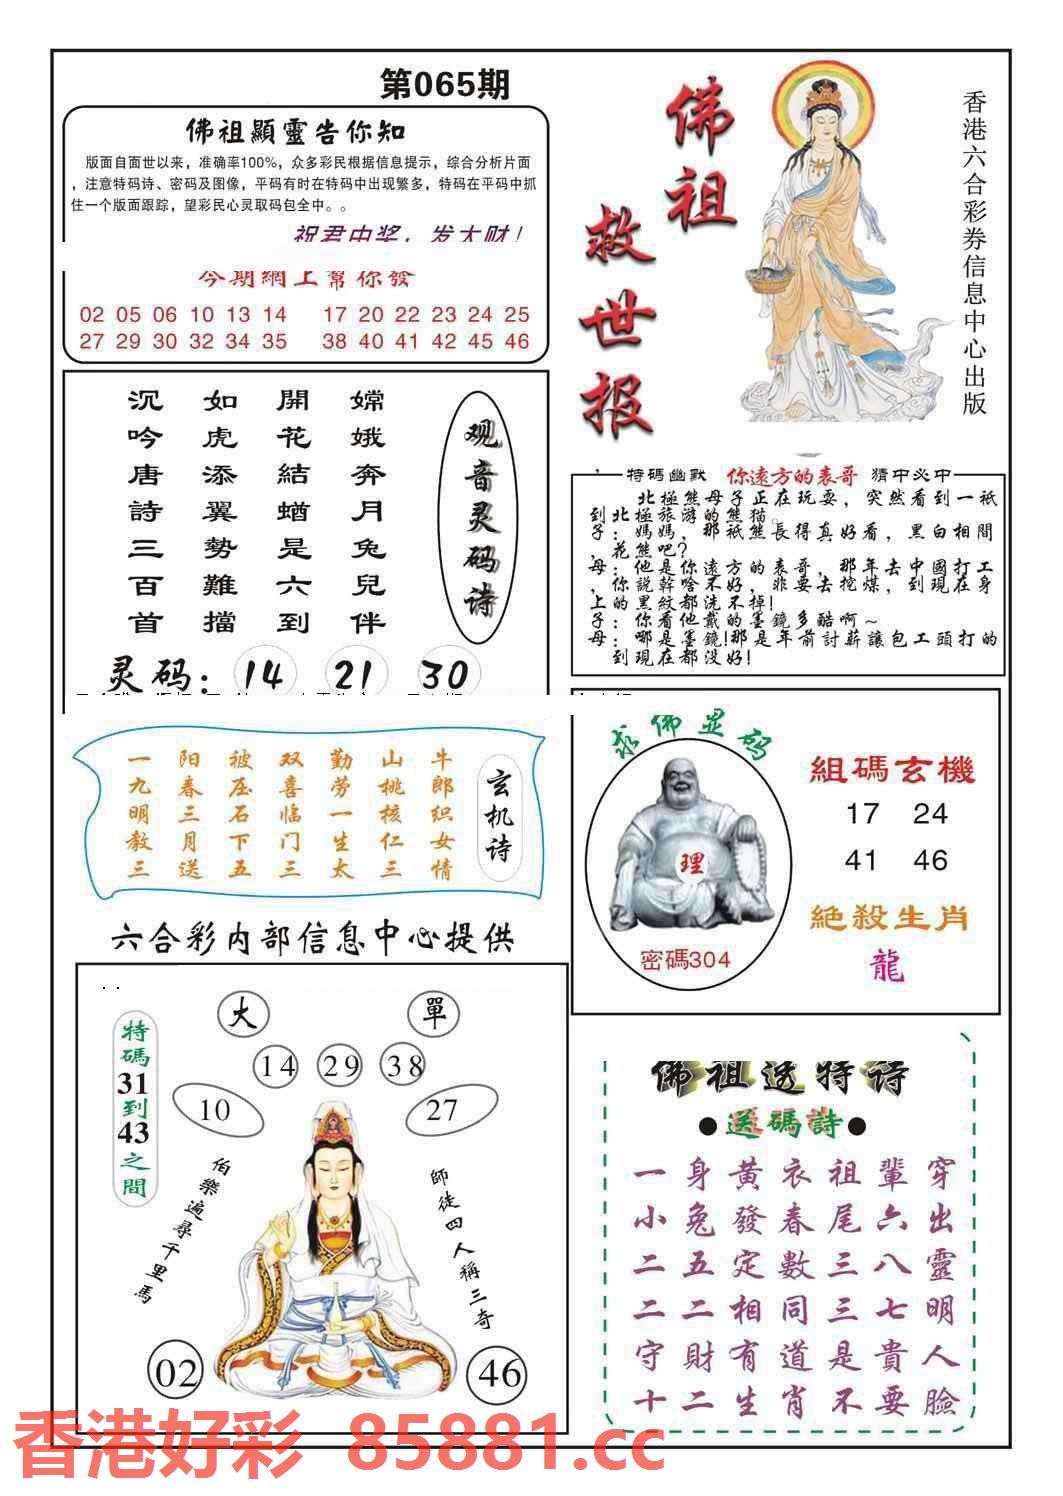 第065期
佛祖顯靈告你知
版面自面世以来，准确率100%，众多彩民根据信息提示，综合分析片面
，注意特码诗、密码及图像，平码有时在特码中出现繁多，特码在平码中抓
住一个版面跟踪，望彩民心灵取码包全中。。
祝君中奖，发大财！
今期網上幫你發
02 05 06 10 13 14 17 20 22 23 24 25
27 29 30 32 34 35 38 40 41 42 45 46
佛祖救世报
香港六合彩券信息中心出版
观音灵码诗
嫦娥奔月兔兒伴
開花結蝤是六到
如虎添翼勢難擋
沉吟唐詩三百首
灵码：14 21 30
特碼幽默 你遠方的表哥 猜中必中
北極熊母子正在玩耍，突然看到一祇
到北極旅游的熊猫。
子：媽媽，那祇熊長得真好看，黑白相間
，花熊吧？
母：他是你遠方的表哥，那年去中國打工
，你説幹啥不好，非要去挖煤，到現在身
上的黑紋都洗不掉！
子：你看他戴的墨鏡多酷啊～
母：哪是墨鏡!那是年前討薪讓包工頭打的
到現在都没好！
玄机诗
牛郎织女情
山桃核仁三
勤劳一生太
双喜临门三
被压石下五
阳春三月送
一九明教三
求佛显码
理
密碼304
組碼玄機
17 24
41 46
絶殺生肖
龍
六合彩内部信息中心提供
特碼31到43之間
大 單
14 29 38
10 27
伯樂遍尋千里馬
師徒四人稱三奇
02 46
佛祖送特诗
●送碼詩●
一身黃衣祖輩穿
小兔發春尾六出
二五定數三八靈
二二相同三七明
守財有道是貴人
十二生肖不要臉
香港好彩 85881.cc